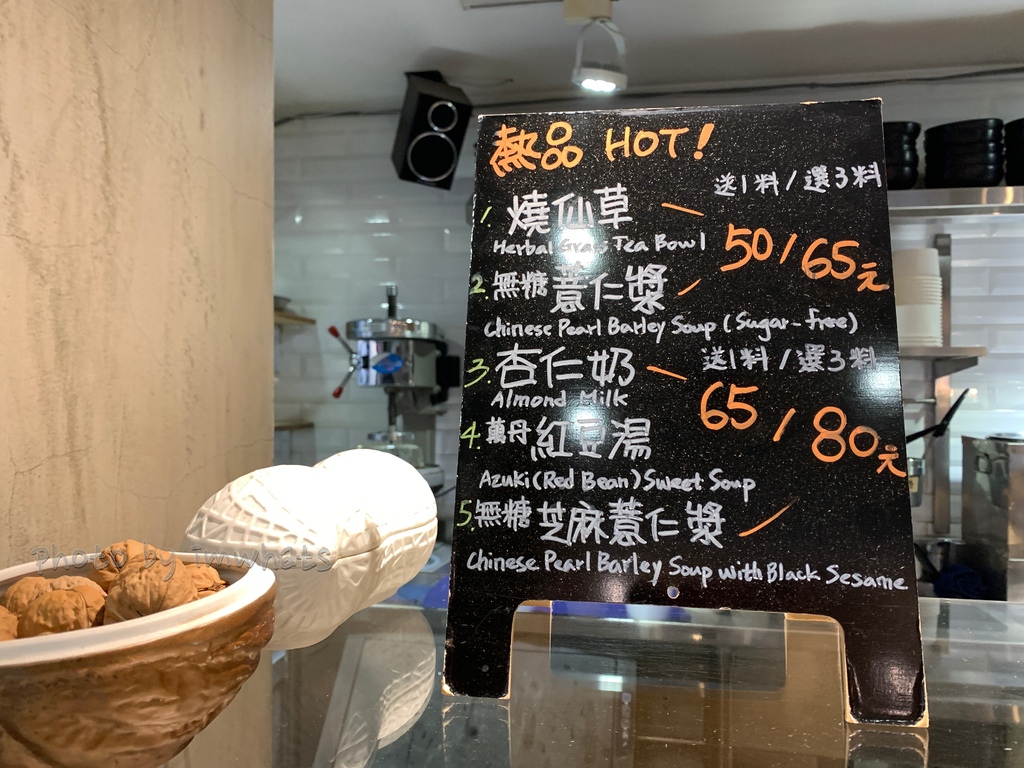 熱品 HOT!
送1料/選3料
1. 燒仙草
Herbal Grass Tea Bowl
50/65元
2. 無糖薏仁漿
Chinese Pearl Barley Soup (Sugar-free)
3. 杏仁奶
送1料/選3料
Almond Milk
65/80元
4. 萬丹紅豆湯
Azuki (Red Bean) Sweet Soup
5. 無糖芝麻薏仁漿
Chinese Pearl Barley Soup with Black Sesame
Photo by imwhats